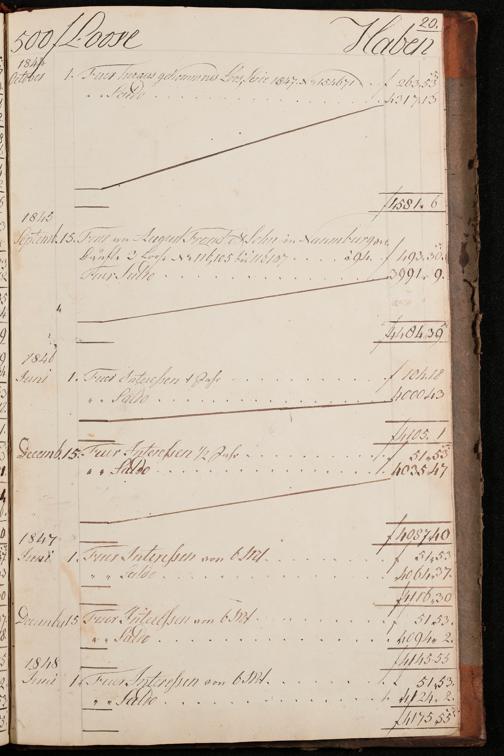 20.
500 f Loose Haben
1844
October 1. Fuer heraus gekommenes Loos Serie 1847. No 184671 f 263.53
" " Saldo f 4317.13
f 4581. 6
1845
Septemb. 15. Fuer von August Sohn in Naumburg
2 Loose No 116,105 bis 116,107 à 94. f 493.30
Fuer Saldo 3991. 9.
f 4484.39
1846
Juni 1. Fuer Interessen 1 Jahr f 104.18
" " Saldo 4000.43
f 4105. 1
Decemb. 15. Fuer Interessen 1/2 Jahr f 51.53
" " Saldo 4035.47
f 4087.40
1847
Juni 1. Fuer Interessen von 6 Mt. f 51.53
" " Saldo 4064.37.
f 4116.30
Decemb. 15 Fuer Interessen von 6 Mt f 51.53.
" " Saldo 4094. 2.
f 4145.55
1848
Juni 1. Fuer Interessen von 6 Mt. f 51.53.
" " Saldo f 4124. 2.
f 4175.55